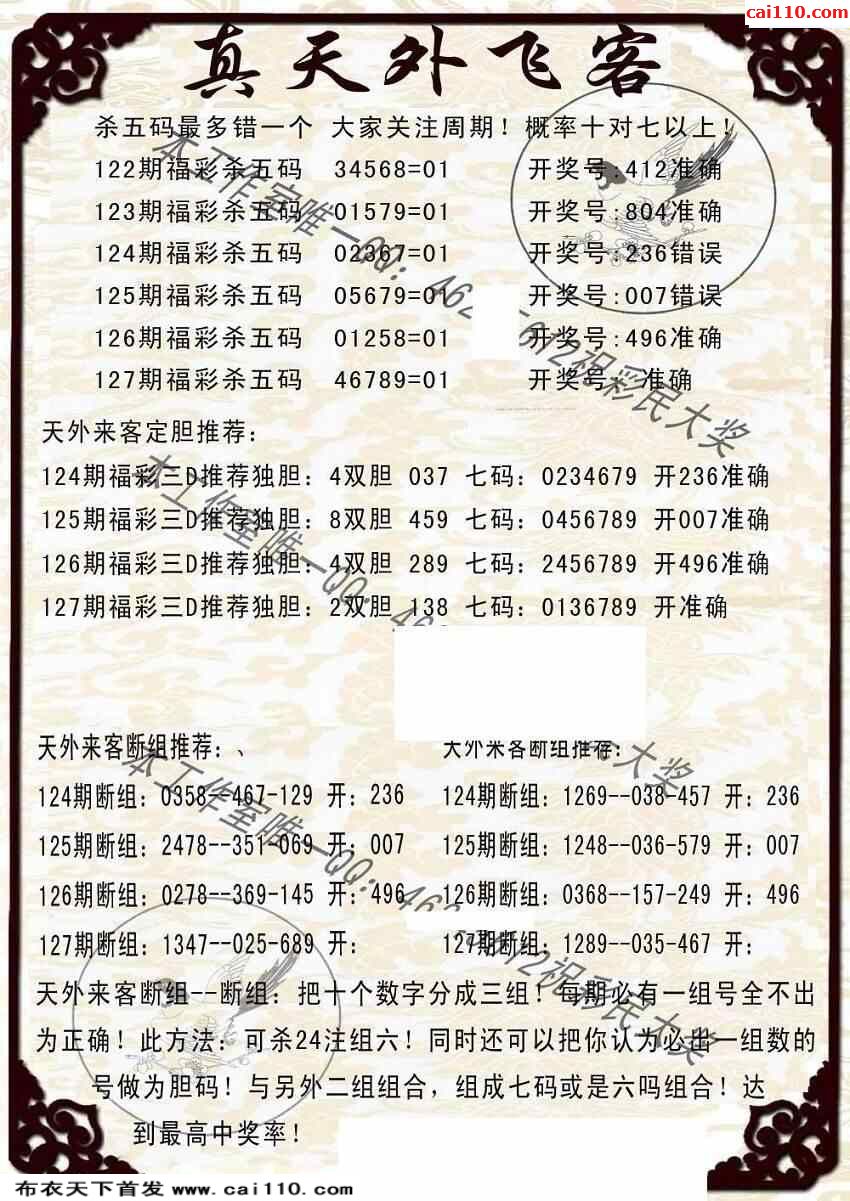 cai110.com
真天外飞客
杀五码最多错一个 大家关注周期！概率十对七以上！
122期福彩杀五码 34568=01 开奖号:412准确
123期福彩杀五码 01579=01 开奖号:804准确
124期福彩杀五码 02367=01 开奖号:236错误
125期福彩杀五码 05679=01 开奖号:007错误
126期福彩杀五码 01258=01 开奖号:496准确
127期福彩杀五码 46789=01 开奖号: 准确
天外来客定胆推荐：
124期福彩三D推荐独胆：4双胆 037 七码：0234679 开236准确
125期福彩三D推荐独胆：8双胆 459 七码：0456789 开007准确
126期福彩三D推荐独胆：4双胆 289 七码：2456789 开496准确
127期福彩三D推荐独胆：2双胆 138 七码：0136789 开准确
天外来客断组推荐：、 天外来客断组推荐：
124期断组：0358--467-129 开：236 124期断组：1269--038-457 开：236
125期断组：2478--351-069 开：007 125期断组：1248--036-579 开：007
126期断组：0278--369-145 开：496 126期断组：0368--157-249 开：496
127期断组：1347--025-689 开： 127期断组：1289--035-467 开：
天外来客断组--断组：把十个数字分成三组！每期必有一组号全不出
为正确！此方法：可杀24注组六！同时还可以把你认为必出一组数的
号做为胆码！与另外二组组合，组成七码或是六吗组合！达
到最高中奖率！
布衣天下首发 www.cai110.com
本工作室唯一QQ：462
612祝彩民大奖
本工作室唯一QQ：46
大奖
本工作室唯一QQ：46
612祝彩民大奖